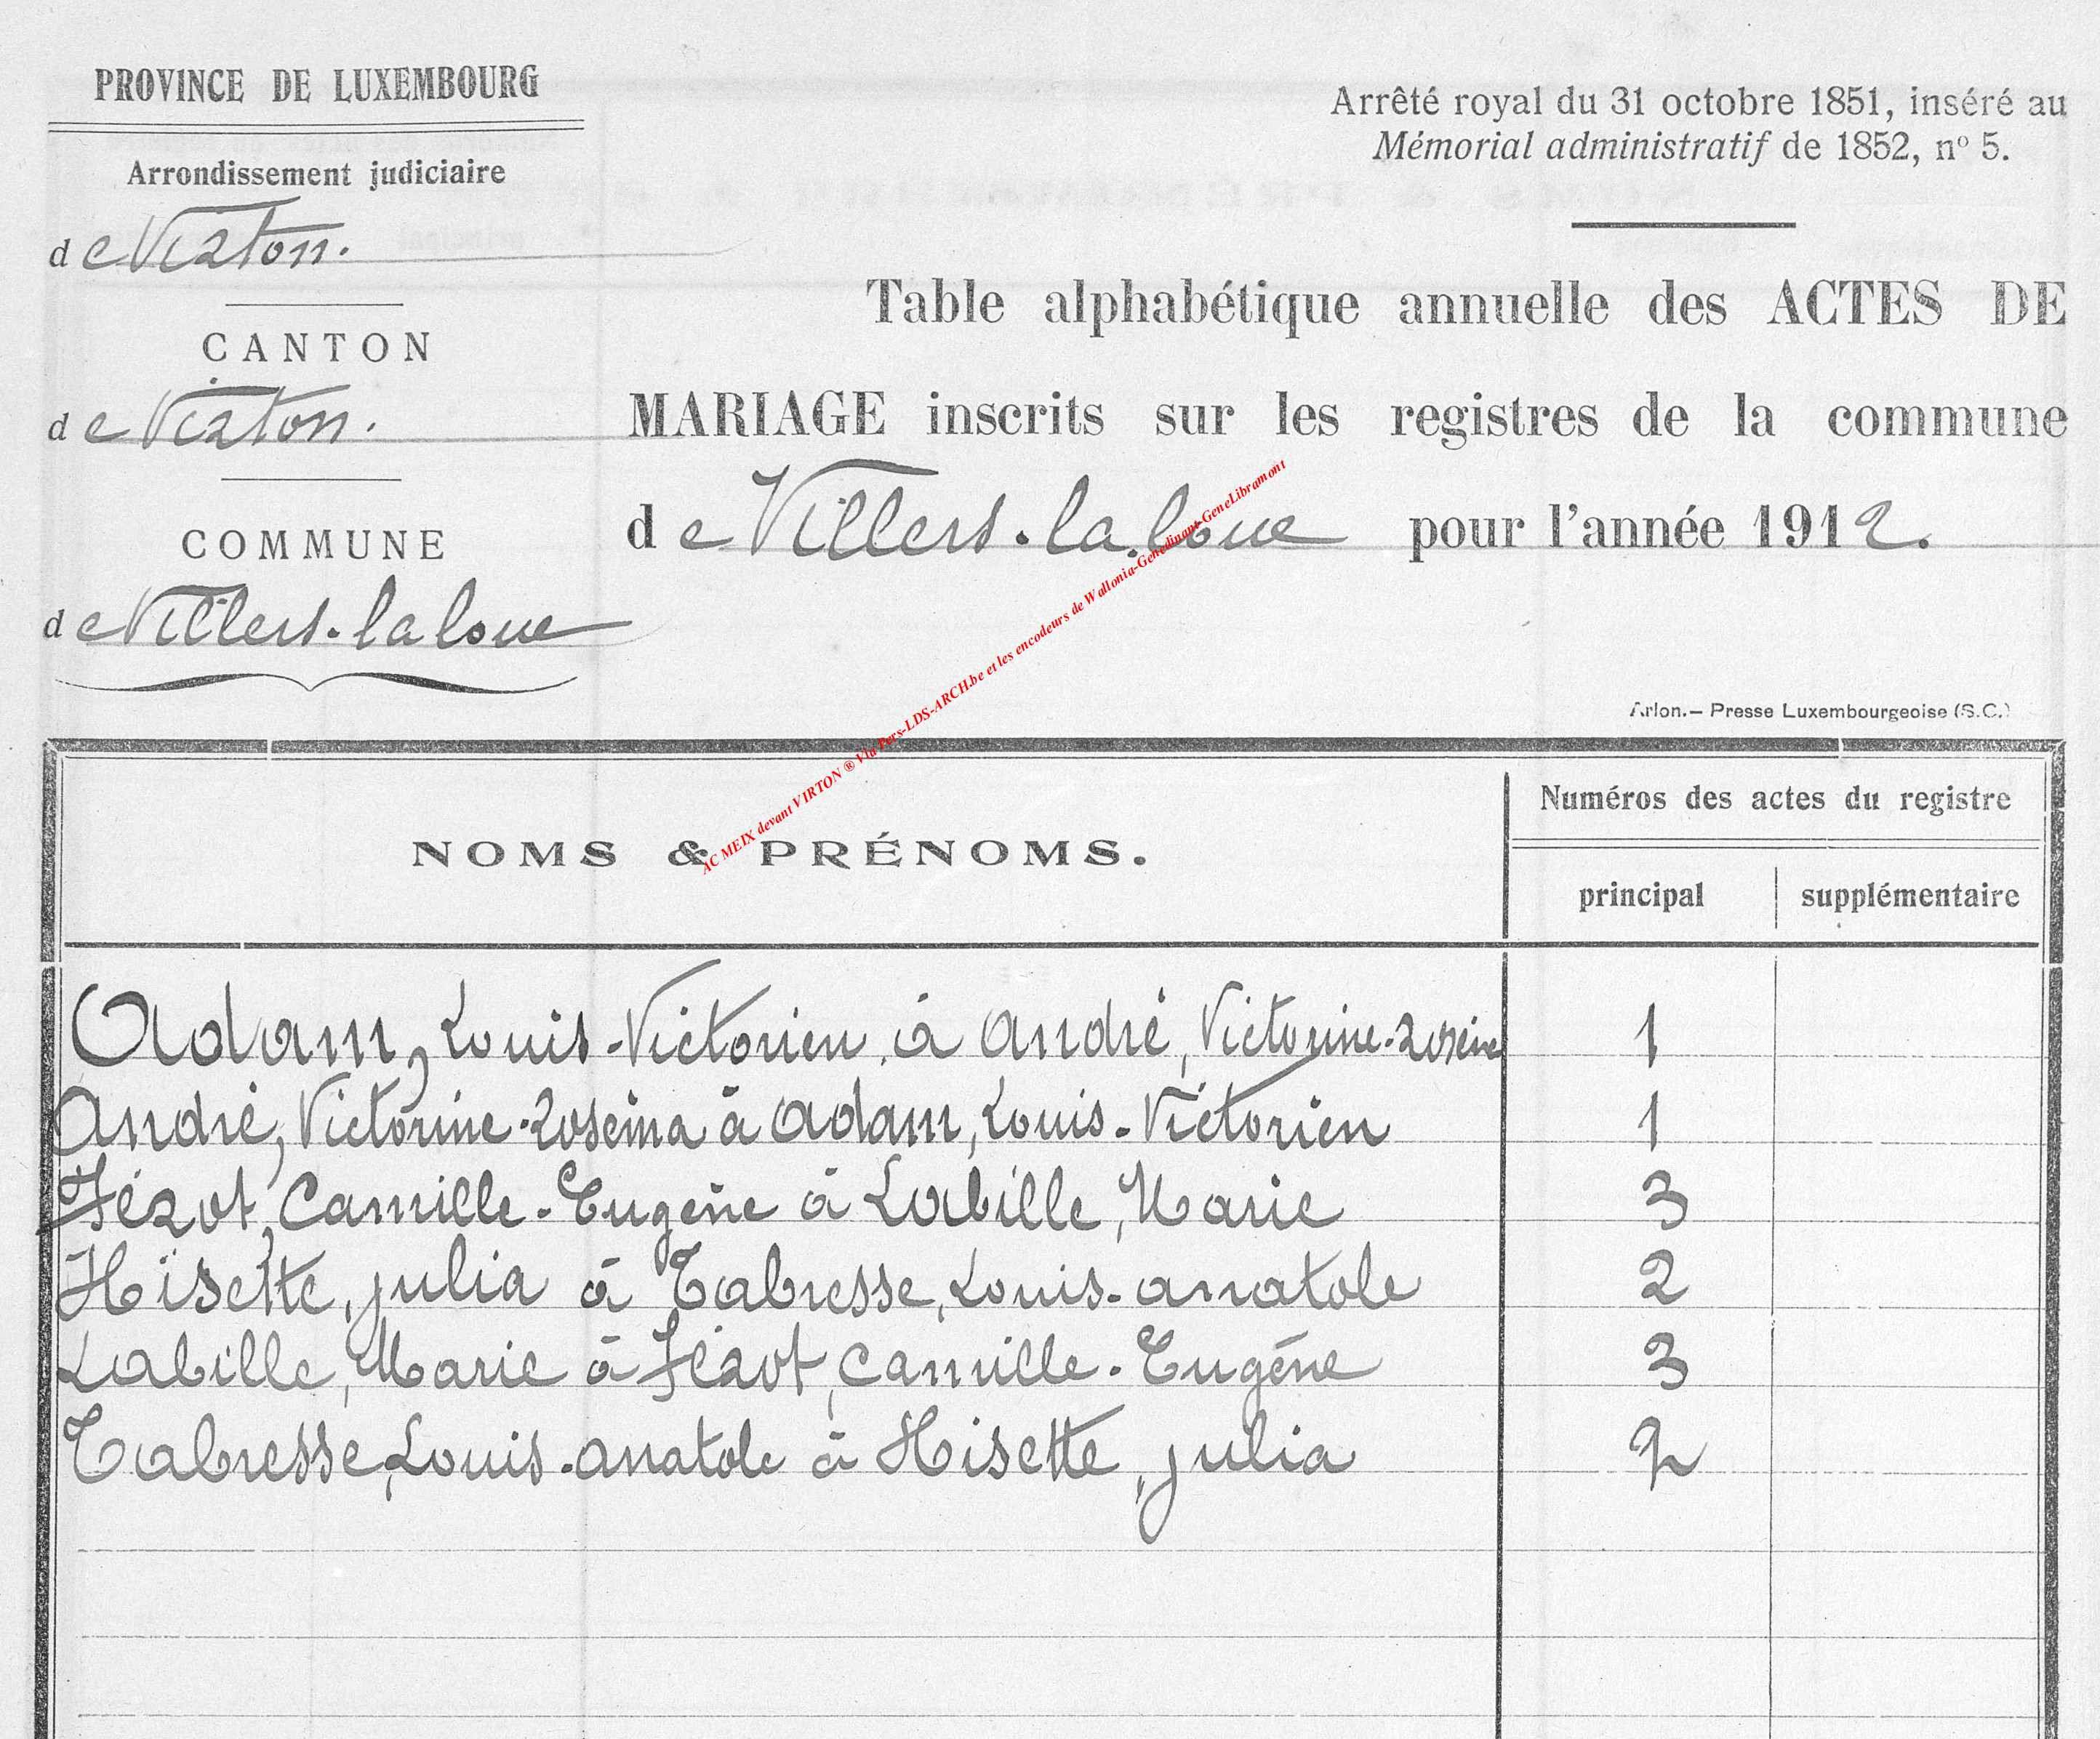 PROVINCE DE LUXEMBOURG
Arrondissement judiciaire
de Virton.
CANTON
de Virton.
COMMUNE
de Villers-la loue
Arrêté royal du 31 octobre 1851, inséré au
Mémorial administratif de 1852, nº 5.
Table alphabétique annuelle des ACTES DE
MARIAGE inscrits sur les registres de la commune
de Villers-la-loue pour l'année 1912.
AC MEIX devant VIRTON ® Via Pers-LDS-ARCH.be et les encodeurs de Wallonia-Genedinant-GeneLibramont
Arlon.— Presse Luxembourgeoise (S.C.)
NOMS & PRÉNOMS.
Numéros des actes du registre
principal supplémentaire
Adam, Louis-Victorien à André, Victorine- 1
André, Victorine-Roséma à Adam, Louis-Victorien 1
Camille-Eugène à Labille, Marie 3
Hisette, julia à Tabresse, Louis-anatole 2
Labille, Marie à Camille-Eugène 3
Tabresse, Louis-anatole à Hisette, julia 2